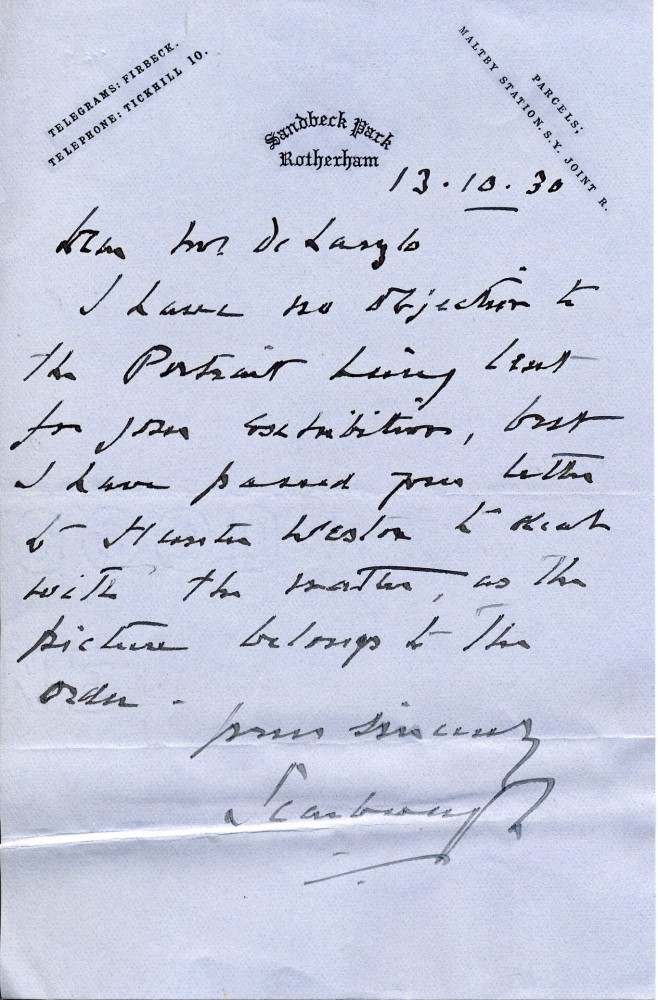 TELEGRAMS: FIRBECK.
TELEPHONE: TICKHILL 10.
PARCELS;
MALTBY STATION. S.Y. JOINT R.
Sandbeck Park
Rotherham
13.10.30
Dear Mr. De Laszlo
I have no objection to
the Portrait being lent
for your exhibition, but
I have passed your letter
to Hunter Weston to deal
with the matter, as the
picture belongs to the
order.
yours sincerely
Scarbrough